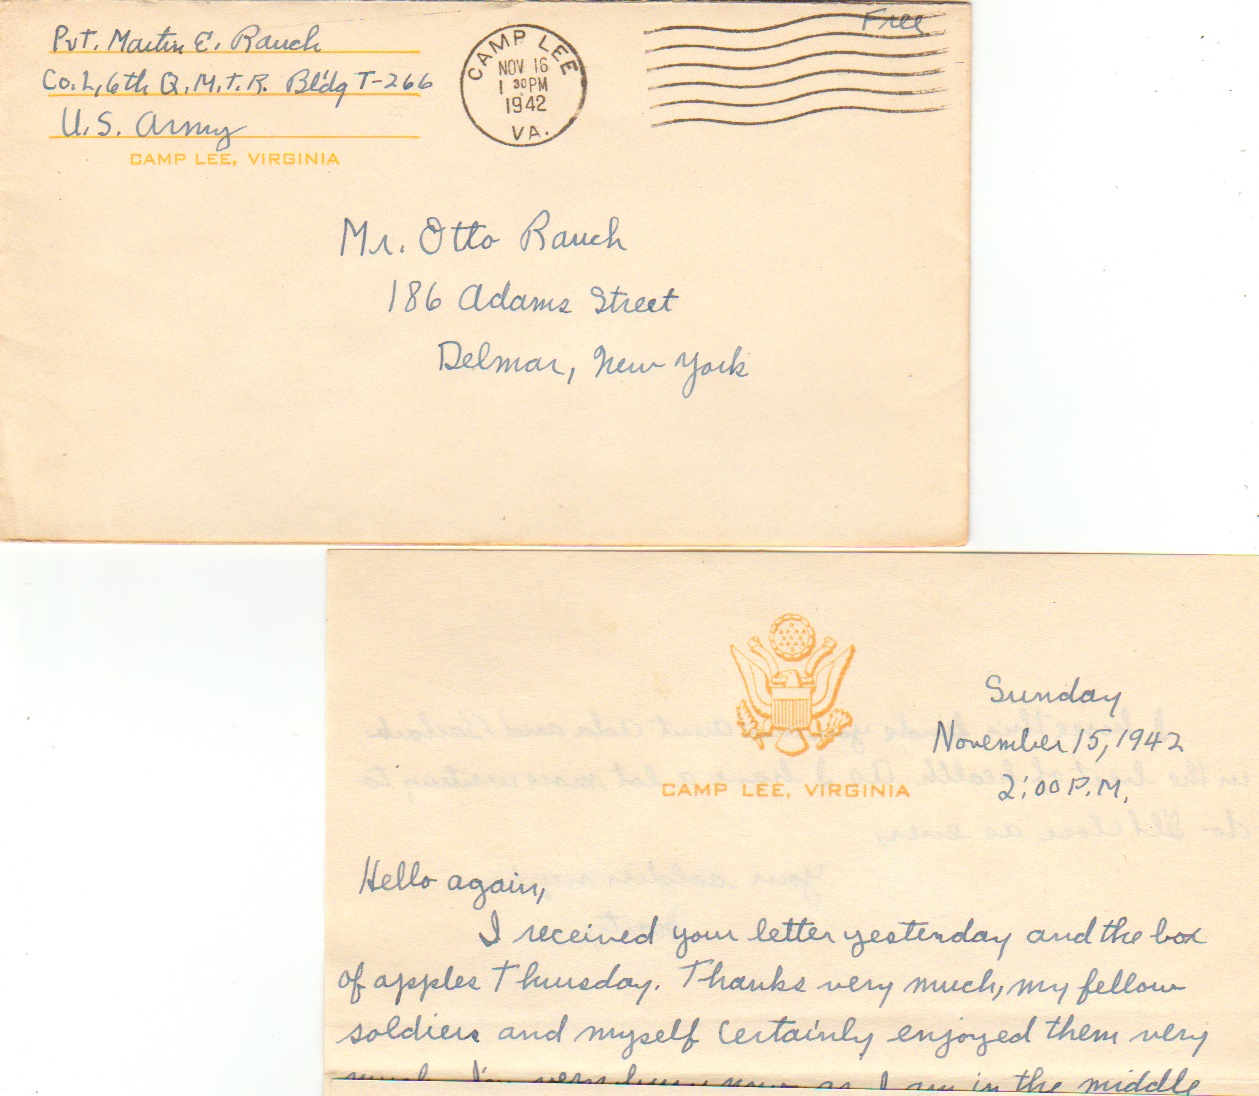 Pvt. Martin E. Rauch
Co. L, 6th Q.M.T.R. Bldg T-266
U.S. Army
CAMP LEE, VIRGINIA
CAMP LEE
NOV 16
1 30 PM
1942
VA.
Free
Mr. Otto Rauch
186 Adams Street
Delmar, New York
CAMP LEE, VIRGINIA
Sunday
November 15, 1942
2:00 P.M.
Hello again,
I received your letter yesterday and the box
of apples Thursday. Thanks very much, my fellow
soldiers and myself certainly enjoyed them very
much. I'm very busy now as I am in the middle